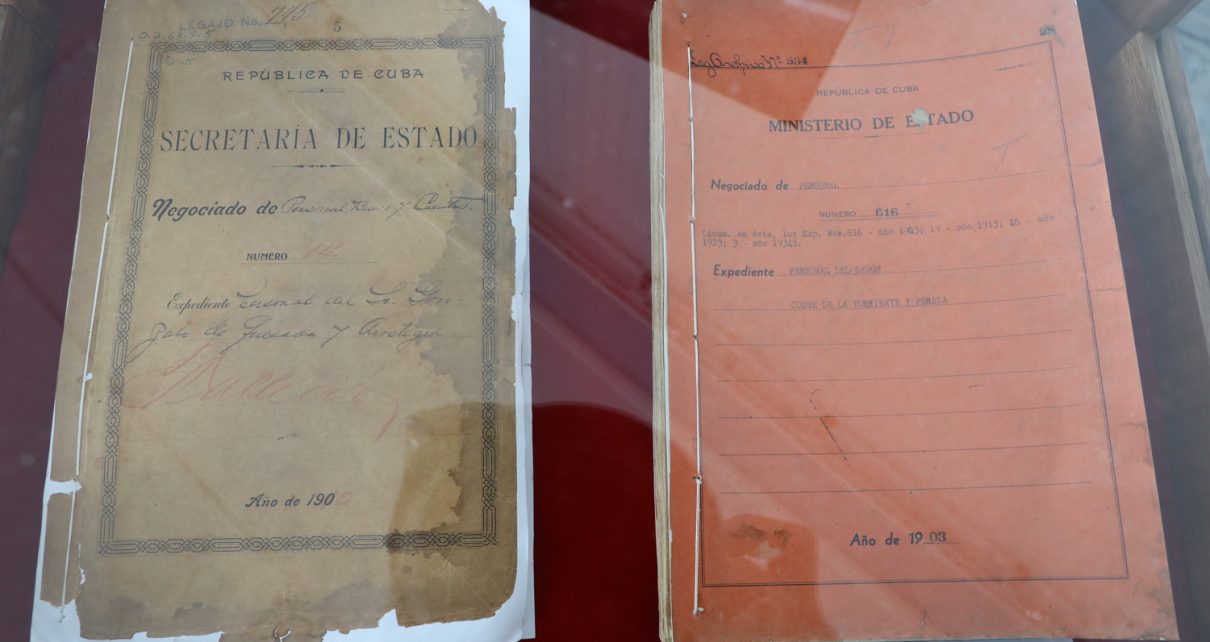 LEGAJO No. 775.
5
REPÚBLICA DE CUBA
SECRETARÍA DE ESTADO
Negociado de Personal y Cuentas.
NUMERO 14
Expediente Personal del Sr. Gon-
zalo de Quesada y Arostegui.
Año de 190
Leg Archivo Nº 334
28
REPUBLICA DE CUBA
MINISTERIO DE ESTADO
Negociado de PERSONAL
NUMERO 616
(Acum. en éste, los Exp. Nos.616 - año 1903; 19 - año 1913; 16 - año
1923; 3 - año 1934).
Expediente PERSONAL DEL SEÑOR
COSME DE LA TORRIENTE Y PERAZA
Año de 1903